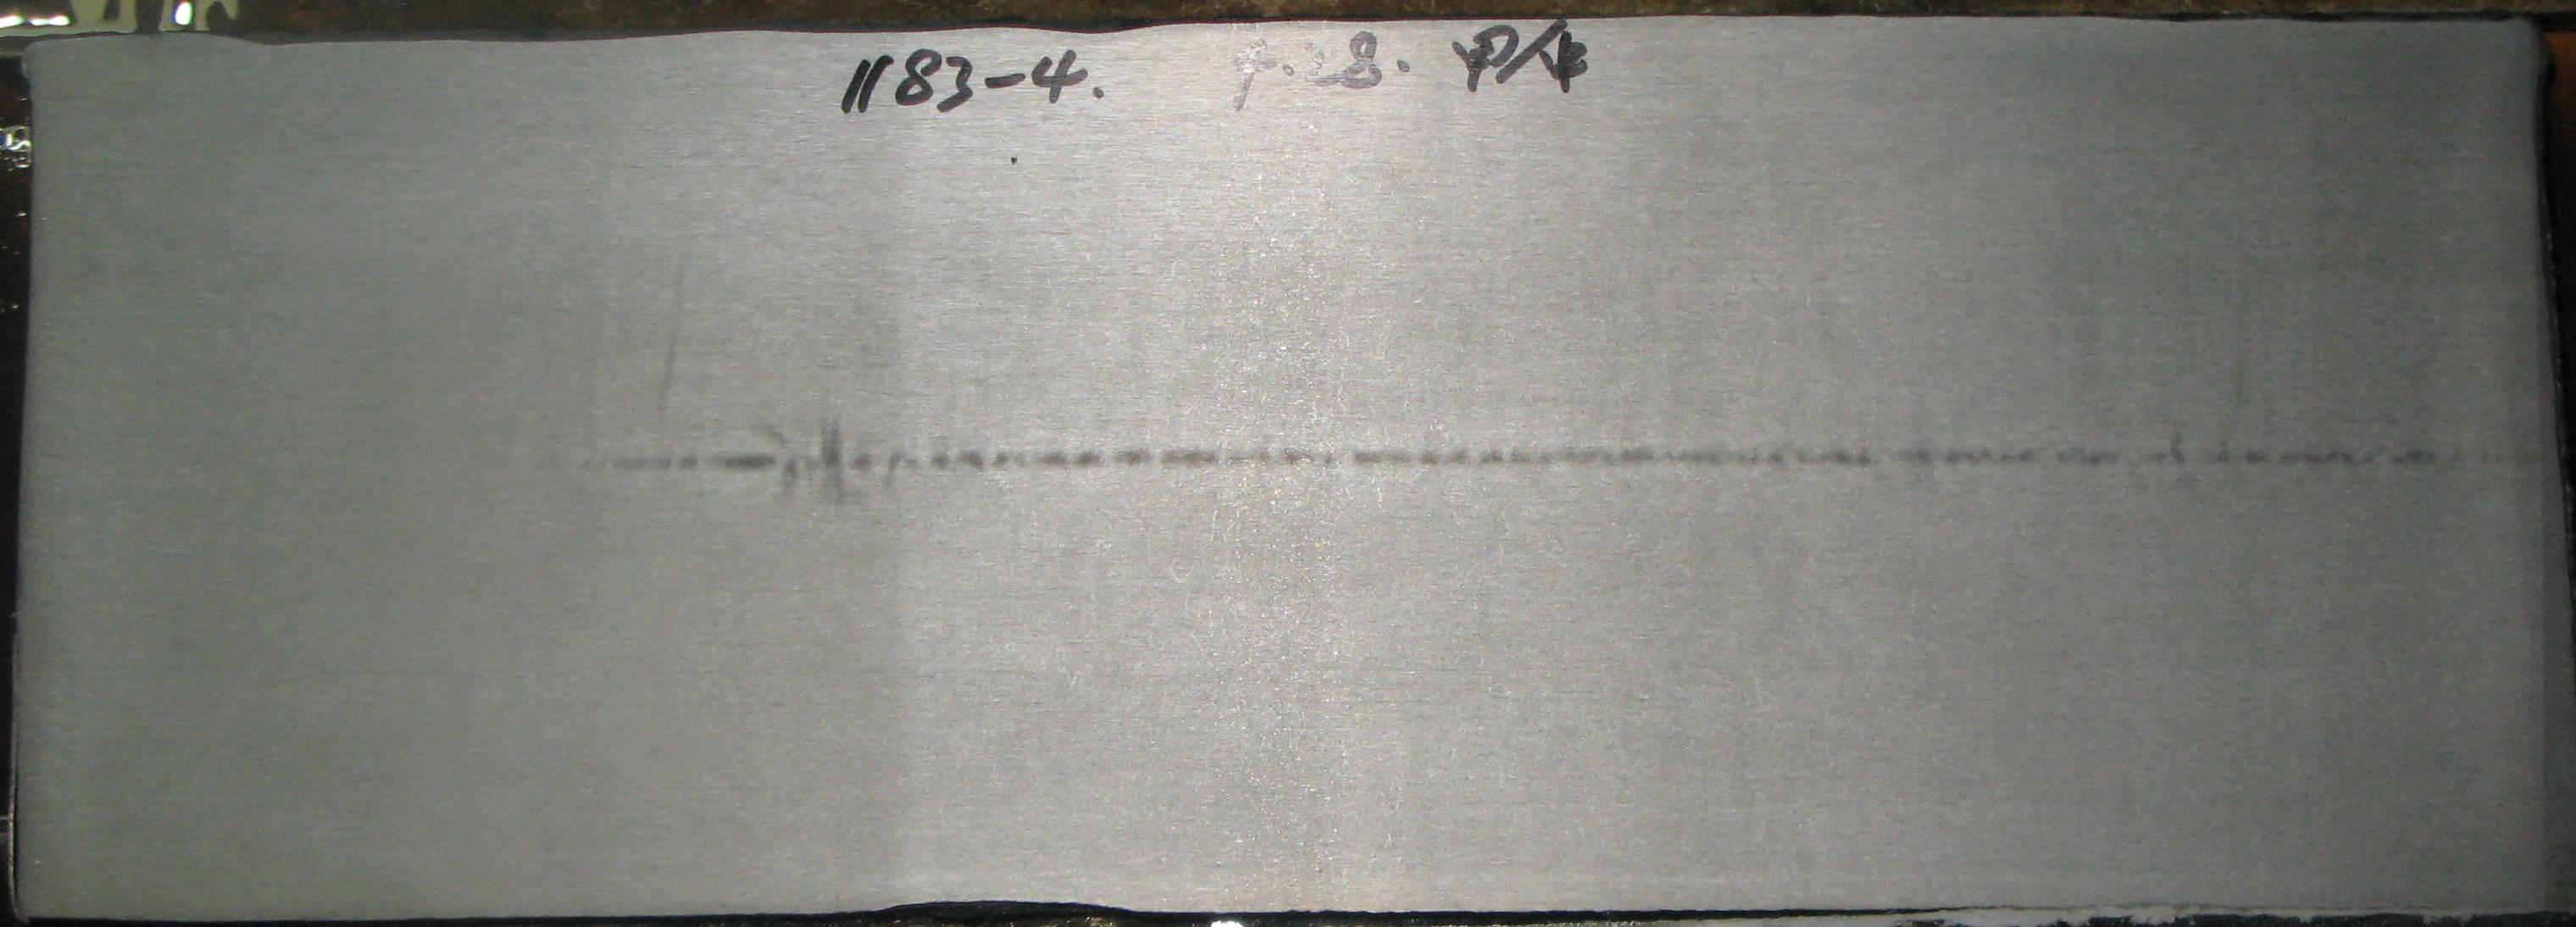 1183-4. 9.28. 甲/